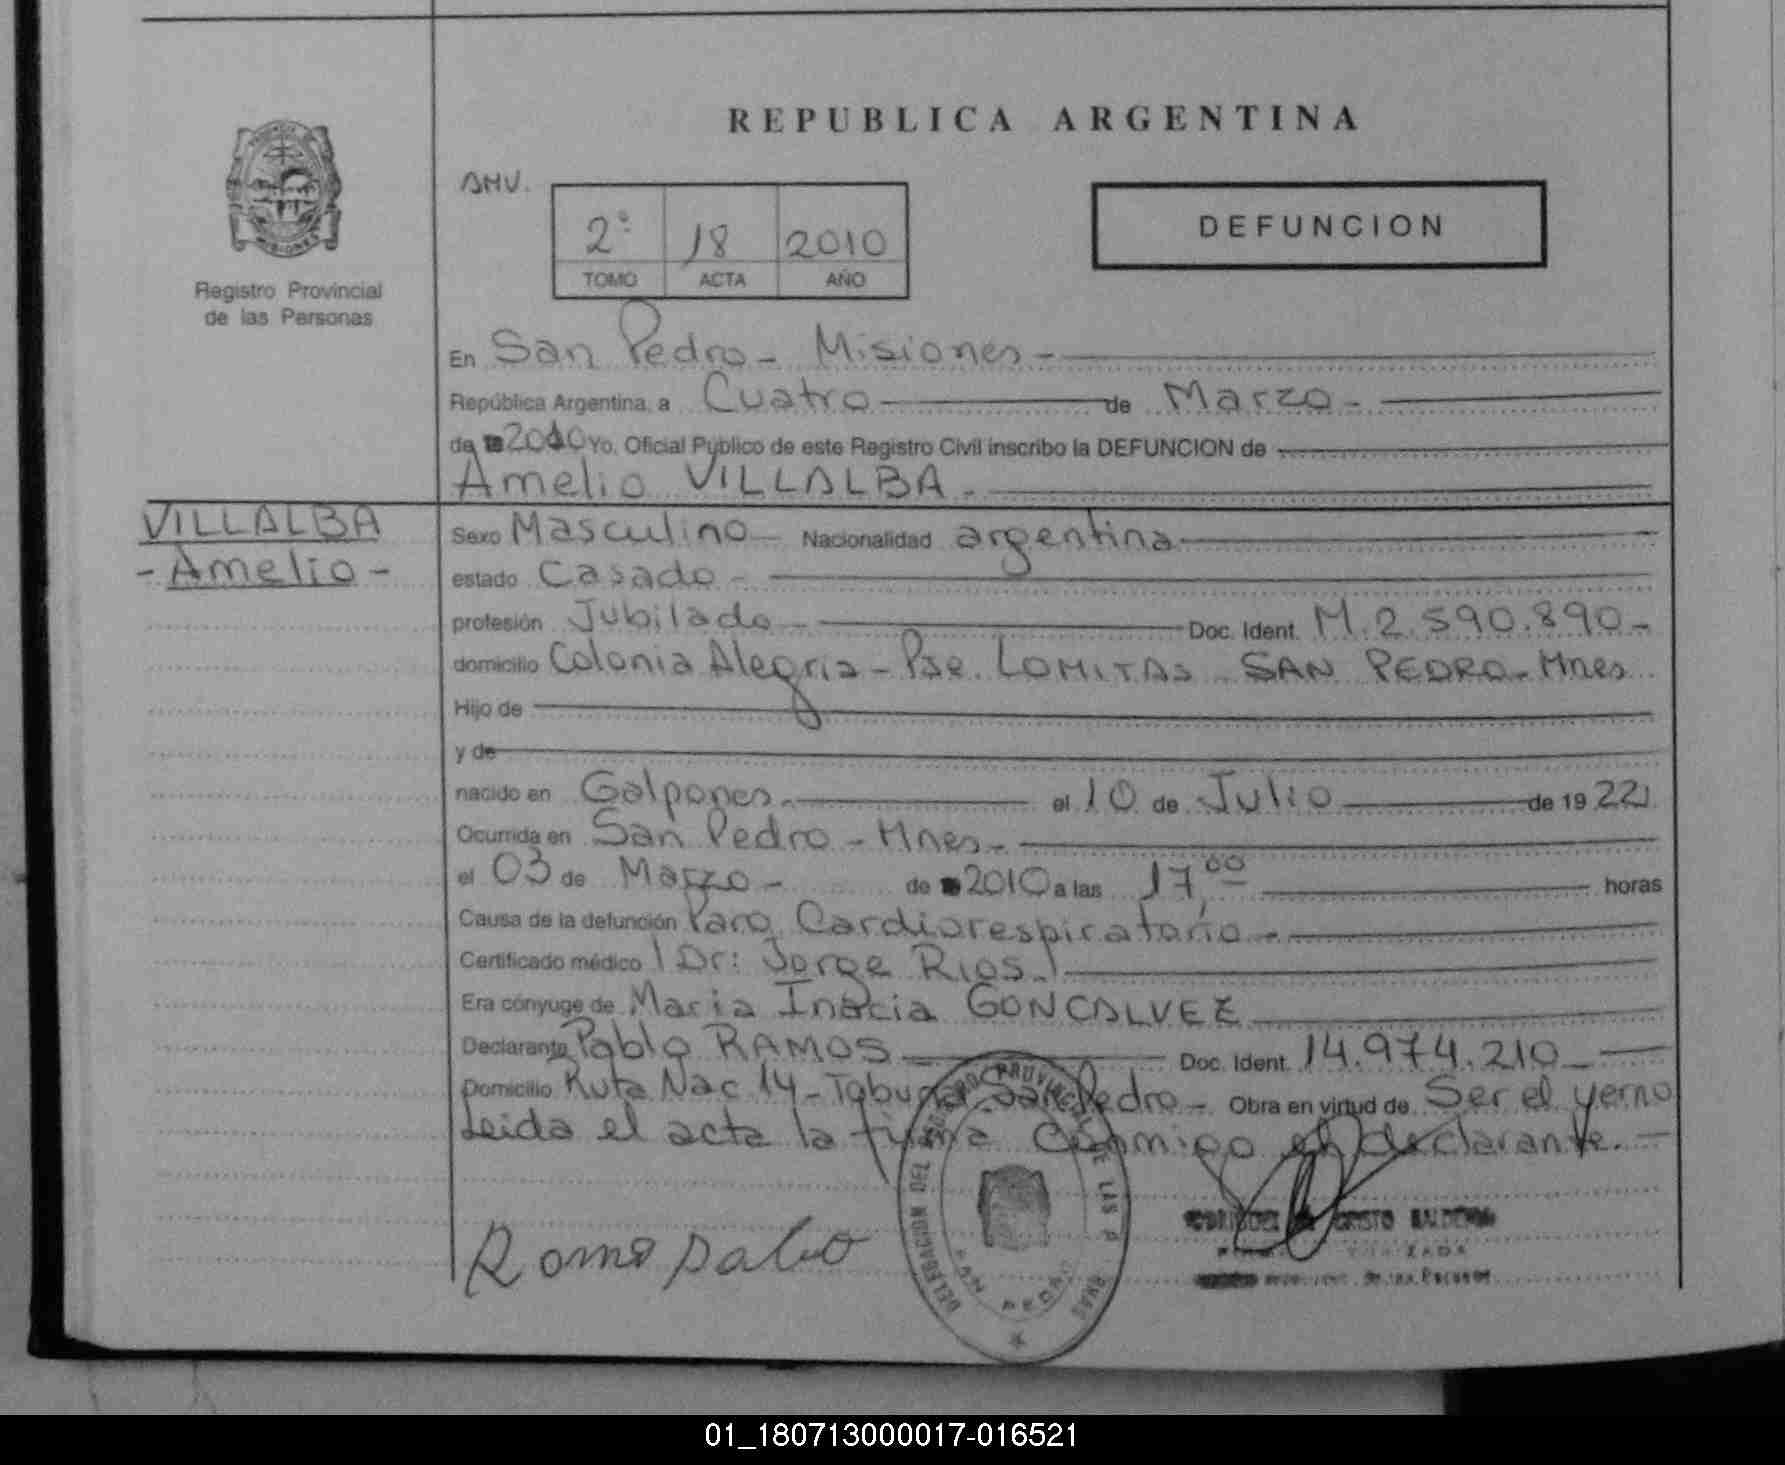 REPUBLICA ARGENTINA
AMV.
2º 18 2010
TOMO ACTA AÑO
DEFUNCION
MISIONES
Registro Provincial
de las Personas
En San Pedro - Misiones -
República Argentina, a Cuatro de Marzo -
de 2010 Yo, Oficial Público de este Registro Civil inscribo la DEFUNCION de
Amelio VILLALBA -
VILLALBA
- Amelio -
Sexo Masculino - Nacionalidad argentina
estado Casado -
profesión Jubilado - Doc. Ident. M. 2.590.890 -
domicilio Colonia Alegria - Pje. LOMITAS SAN PEDRO - Mnes
Hijo de
y de
nacido en Galpones. el 10 de Julio de 1922
Ocurrida en San Pedro - Mnes -
el 03 de Marzo - de 2010 a las 17,00 horas
Causa de la defunción Paro Cardiorespiratorio -
Certificado médico | Dr: Jorge Rios. |
Era cónyuge de Maria Inacia GONCALVEZ
Declarante Pablo RAMOS Doc. Ident. 14.974.210 -
Domicilio Ruta Nac 14 - Tobuna San Pedro - Obra en virtud de Ser el yerno
Leida el acta la firma conmigo el declarante. -
DELEGACION DEL REGISTRO PROVINCIAL DE LAS P
SAN PEDRO
Romo pablo
CRISTO
01_180713000017-016521